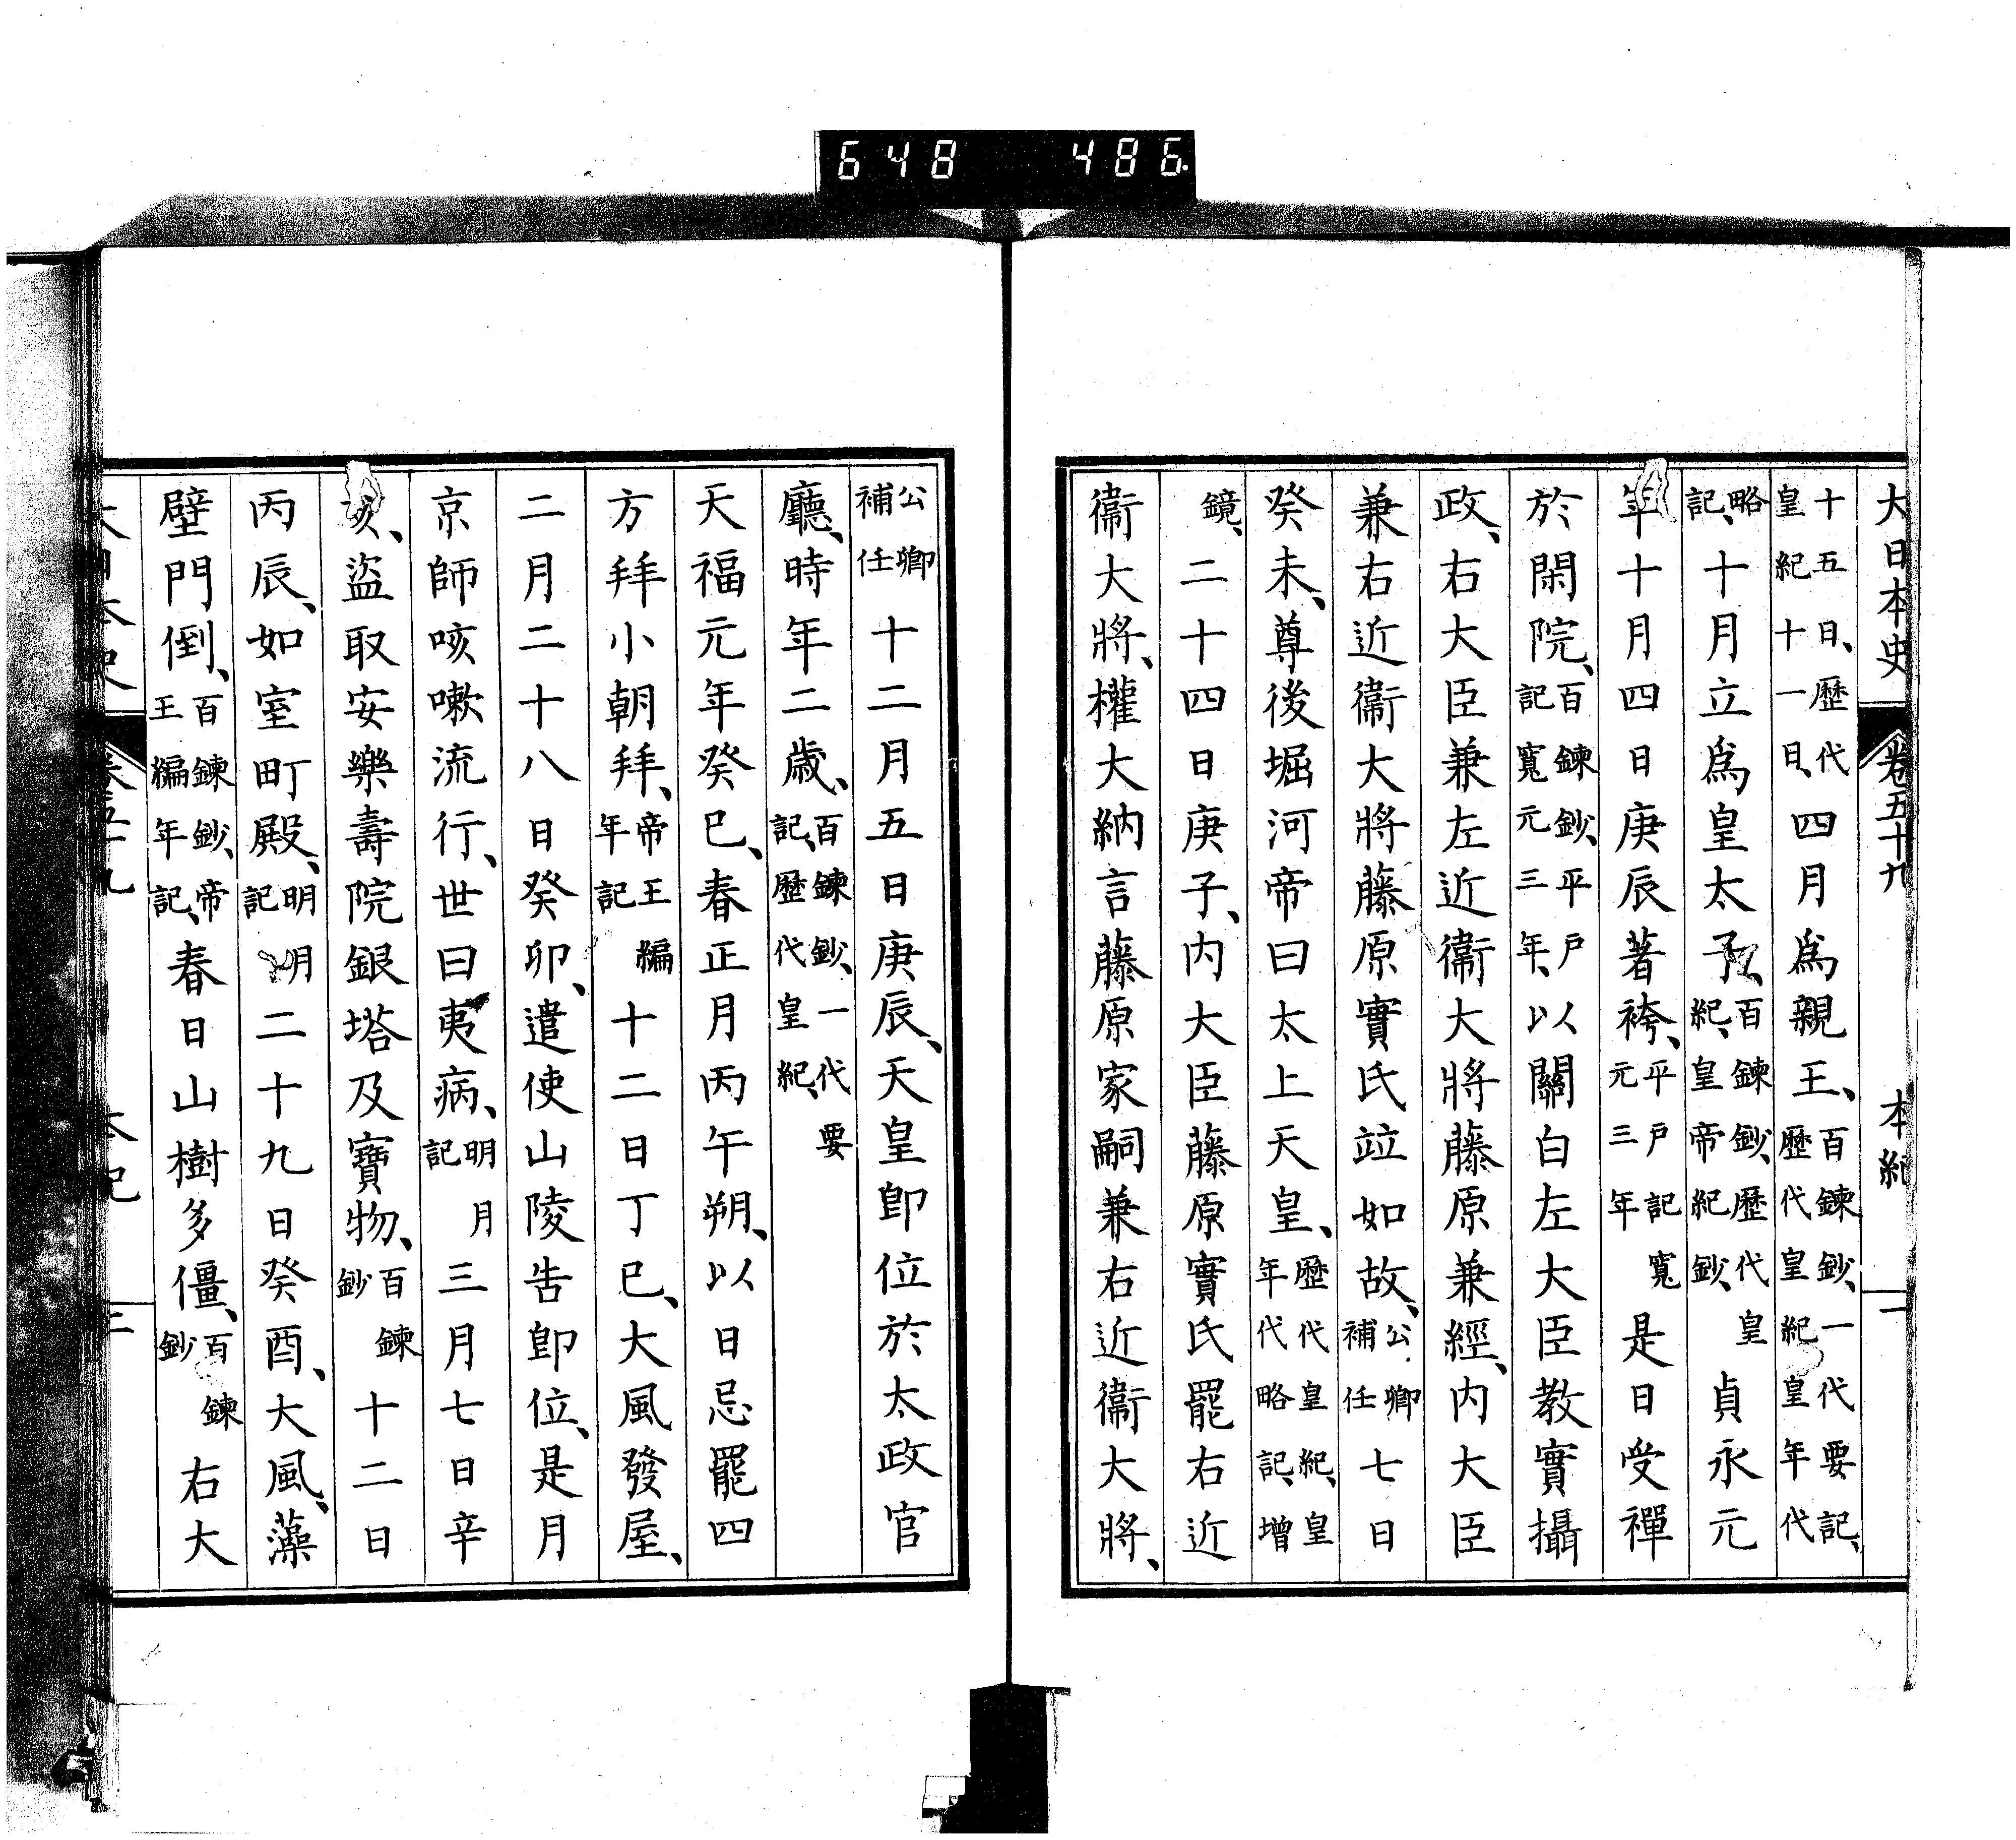 648 486
大日本史 卷五十九 本紀 二
十五日、歷代皇紀十一日、四月爲親王、百鍊鈔、一代要記、歷代皇紀皇年代
略記、十月立爲皇太子、百鍊鈔、歷代皇紀、皇帝紀鈔、貞永元
年十月四日庚辰著袴、平戸記寬元三年是日受禪
於閑院、百鍊鈔、平戸記寬元三年、以關白左大臣教實攝
政、右大臣兼左近衞大將藤原兼經、内大臣
兼右近衞大將藤原實氏竝如故、公卿補任七日
癸未、尊後堀河帝曰太上天皇、歷代皇紀、皇年代略記、增
鏡、二十四日庚子、内大臣藤原實氏罷右近
衞大將、權大納言藤原家嗣兼右近衞大將、
公卿補任十二月五日庚辰、天皇卽位於太政官
廳、時年二歲、百鍊鈔、一代要記、歷代皇紀、
天福元年癸巳、春正月丙午朔、以日忌罷四
方拜小朝拜、帝王編年記十二日丁巳、大風發屋、
二月二十八日癸卯、遣使山陵告卽位、是月
京師咳嗽流行、世曰夷病、明月記三月七日辛
亥、盜取安樂壽院銀塔及寶物、百鍊鈔十二日
丙辰、如室町殿、明月記、明二十九日癸酉、大風、藻
壁門倒、百鍊鈔、帝王編年記、春日山樹多僵、百鍊鈔右大
大日本史 卷五十九 本紀 三